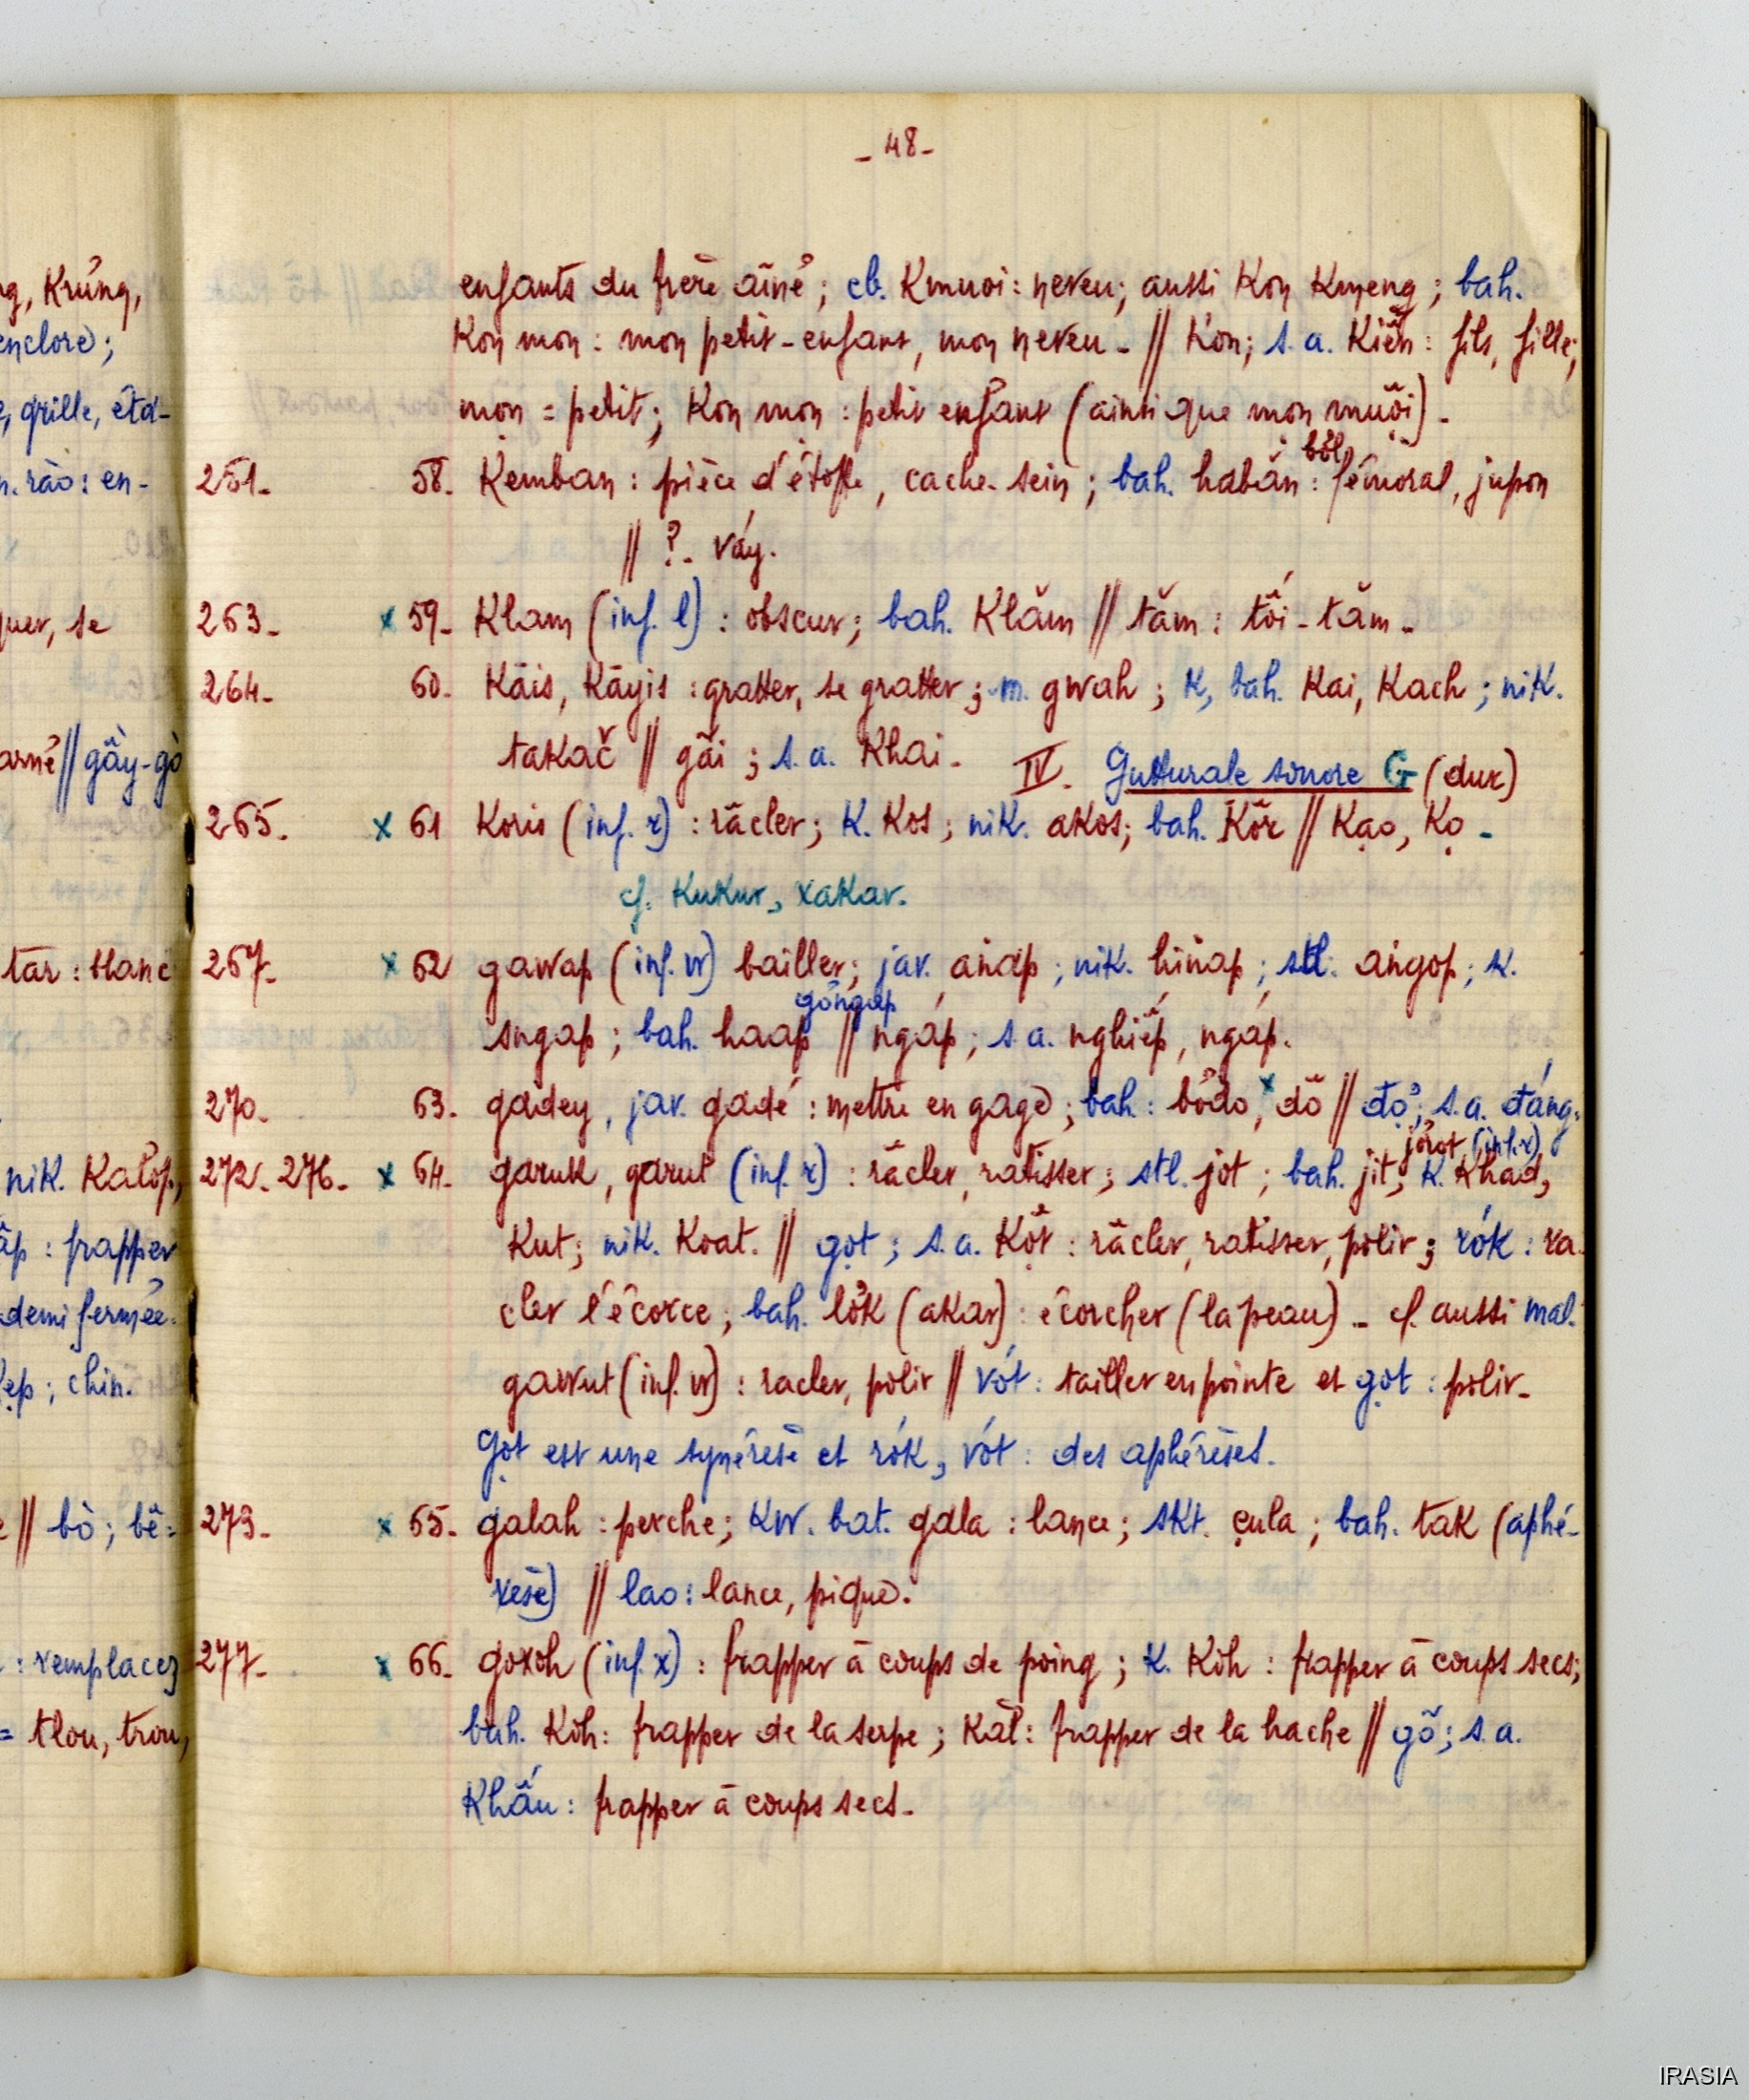 - 48 -
enfants du frère aîné ; cb. Kmuoi : neveu ; aussi Kon Kmeng ; bah.
Kon mon : mon petit-enfant, mon neveu - // Kon ; s. a. Kiên : fils, fille ;
mon = petit ; Kon mon : petit enfant (ainsi que mon muôi) -
251- 58- Kemban : pièce d'étoffe, cache-sein ; bah. habăn : böl, fémoral, jupon
// ? - váy.
263- x 59- Klam (inf. l) : obscur ; bah. Klăm // tăm : tối - tăm -
264- 60- Kāis, Kāyis : gratter, se gratter ; m. gwah ; K, bah. Kai, Kach ; nik.
takač // gãi ; s. a. Khai -
IV- Gutturale sonore G (dur)
265- x 61 Koris (inf. r) : râcler ; K. Kos ; nik. akos ; bah. Kŏr // Kạo, Kọ -
cf. Kukur, xakar.
267- x 62 gawap (inf. w) bailler ; jav. añap ; nik. hiñap ; stl. añgop ; K.
sngap ; bah. haap göngap // ngáp ; s. a. nghiếp, ngáp.
270- 63- gadey, jav. gadé : mettre en gage ; bah : bŏdo, x dŏ // đọ ; s. a. đáng.
272- 276- x 64- garuk, garut (inf. r) : râcler, ratisser ; stl. jot ; bah. jit, jŏrot (inf. r) ; K. Khad,
Kut ; nik. Koat. // gọt ; s. a. Kột : râcler, ratisser, polir ; rók : ra-
cler l'écorce ; bah. lŏk (akar) : écorcher (la peau) - cf. aussi mal.
gawut (inf. w) : racler, polir // vót : tailler en pointe et gọt : polir -
Gọt est une synérèse et rók, vót : des aphérèses.
273- x 65- galah : perche ; kw. bat. gala : lance ; skt. çula ; bah. tak (aphé-
rèse) // lao : lance, pique.
277- x 66- goxoh (inf. x) : frapper à coups de poing ; K. Koh : frapper à coups secs ;
bah. Kŏh : frapper de la serpe ; Kăl : frapper de la hache // gõ ; s. a.
Khấu : frapper à coups secs -
ng, Krúng,
enclore ;
, grille, éta-
n. rào : en-
quer, se
arné // gầy-gò
tar : blanc
nik. Kalop,
âp : frapper
demi fermée.
ẹp ; chin.
e // bò ; bê =
: remplacez
= tlou, trou,
IRASIA